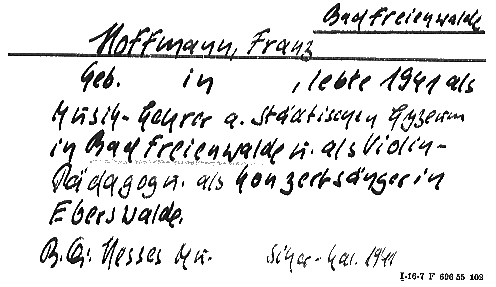 Bad Freienwalde
Hoffmann, Franz
Geb. in , lebte 1941 als
Musik-Lehrer a. Städtischen Lyzeum
in Bad Freienwalde u. als Violin-
Pädagog u. als Konzertsänger in
Eberswalde.
Hesses Mu. 1941
I-16-7 F 696 55 102